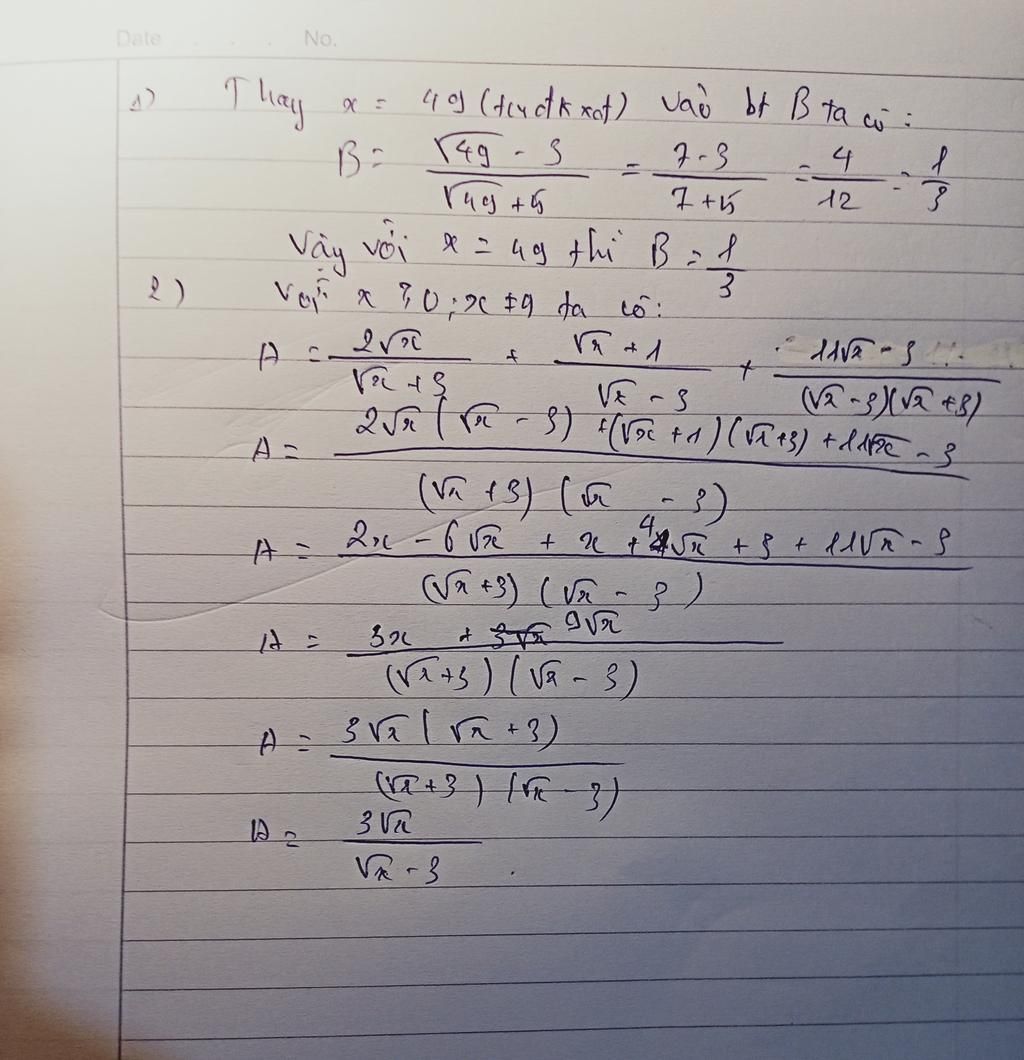 Date . . . No.
1) Thay x = 49 (tmđkxđ) vào bt B ta có :
B = (√49 - 3)/(√49 + 5) = (7 - 3)/(7 + 5) = 4/12 = 1/3
Vậy với x = 49 thì B = 1/3
2) Với x ≥ 0 ; x ≠ 9 ta có :
A = (2√x)/(√x + 3) + (√x + 1)/(√x - 3) + (11√x - 3)/((√x - 3)(√x + 3))
A = (2√x(√x - 3) + (√x + 1)(√x + 3) + 11√x - 3)/((√x + 3)(√x - 3))
A = (2x - 6√x + x + 4√x + 3 + 11√x - 3)/((√x + 3)(√x - 3))
A = (3x + 9√x)/((√x + 3)(√x - 3))
A = (3√x(√x + 3))/((√x + 3)(√x - 3))
A = (3√x)/(√x - 3) .